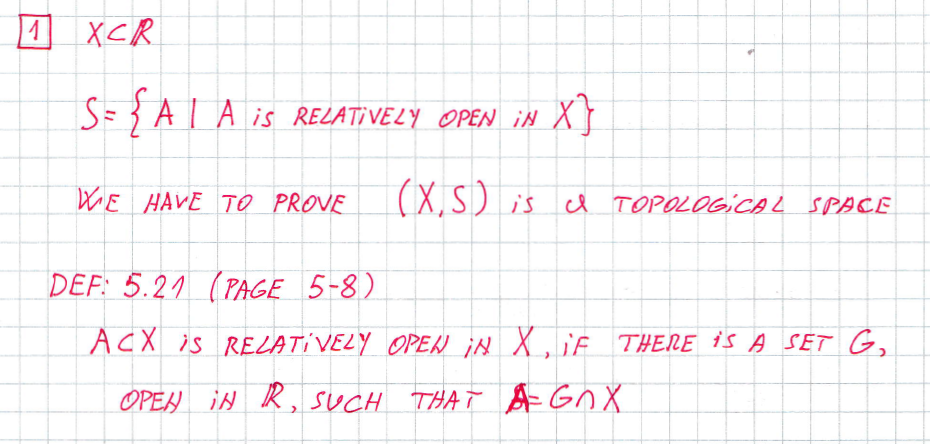 1 X⊂ℝ
S={A | A is RELATIVELY OPEN iN X}
WE HAVE TO PROVE (X,S) is a TOPOLOGICAL SPACE
DEF: 5.21 (PAGE 5-8)
A⊂X is RELATIVELY OPEN iN X, iF THERE is A SET G,
OPEN iN ℝ, SUCH THAT A=G∩X